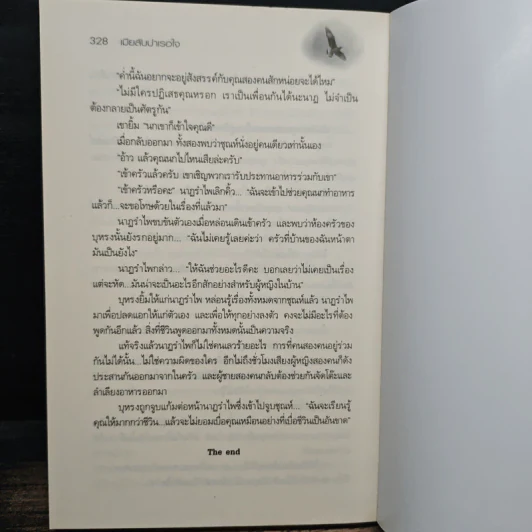 328 เมียสับปาเรต์ใจ
"ค่ำนี้ฉันอยากจะอยู่สังสรรค์กับคุณสองคนสักหน่อยจะได้ไหม"
"ไม่มีใครปฏิเสธคุณหรอก เราเป็นเพื่อนกันได้นะนาฏ ไม่จำเป็น
ต้องกลายเป็นศัตรูกัน"
เขายิ้ม "นกเขาก็เข้าใจคุณดี"
เมื่อกลับออกมา ทั้งสองพบว่าชุณห์นั่งอยู่คนเดียวเท่านั้นเอง
"อ้าว แล้วคุณนกไปไหนเสียล่ะครับ"
"เข้าครัวแล้วครับ เขาเชิญพวกเรารับประทานอาหารร่วมกับเขา"
"เข้าครัวหรือคะ" นาฏรำไพเลิกคิ้ว... "ฉันจะเข้าไปช่วยคุณนกทำอาหาร
แล้วก็...จะขอโทษด้วยในเรื่องที่แล้วมา"
นาฏรำไพขบขันตัวเองเมื่อหล่อนเดินเข้าครัว และพบว่าห้องครัวของ
บุหรงนั้นยังรกอยู่มาก... "ฉันไม่เคยรู้เลยค่ะว่า ครัวที่บ้านของฉันหน้าตา
มันเป็นยังไง"
นาฏรำไพกล่าว... "ให้ฉันช่วยอะไรดีคะ บอกเลยว่าไม่เคยเป็นเรื่อง
แต่จะหัด...มันน่าจะเป็นอะไรอีกสักอย่างสำหรับผู้หญิงในบ้าน"
บุหรงยิ้มให้แก่นาฏรำไพ หล่อนรู้เรื่องทั้งหมดจากชุณห์แล้ว นาฏรำไพ
มาเพื่อปลดแอกให้แก่ตัวเอง และเพื่อให้ทุกอย่างลงตัว คงจะไม่มีอะไรที่ต้อง
พูดกันอีกแล้ว สิ่งที่ชีวินพูดออกมาทั้งหมดนั้นเป็นความจริง
แท้จริงแล้วนาฏรำไพก็ไม่ใช่คนเลวร้ายอะไร การที่คนสองคนอยู่ร่วม
กันไม่ได้นั้น...ไม่ใช่ความผิดของใคร อีกไม่ถึงชั่วโมงเสียงผู้หญิงสองคนก็ดัง
ประสานกันออกมาจากในครัว และผู้ชายสองคนกลับต้องช่วยกันจัดโต๊ะและ
ลำเลียงอาหารออกมา
บุหรงถูกจูบแก้มต่อหน้านาฏรำไพซึ่งเข้าไปจูบชุณห์... "ฉันจะเรียนรู้
คุณให้มากกว่าชีวิน...แล้วจะไม่ยอมเบื่อคุณเหมือนอย่างที่เบื่อชีวินเป็นอันขาด"
The end